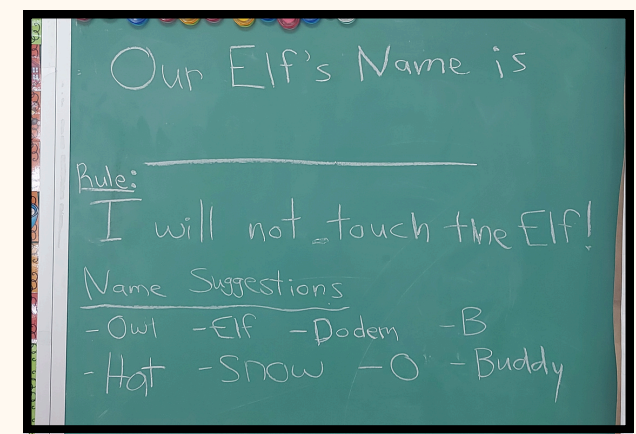 Our Elf's Name is
Rule:
I will not touch the Elf!
Name Suggestions
- Owl - Elf - Dodem - B
- Hat - Snow - O - Buddy